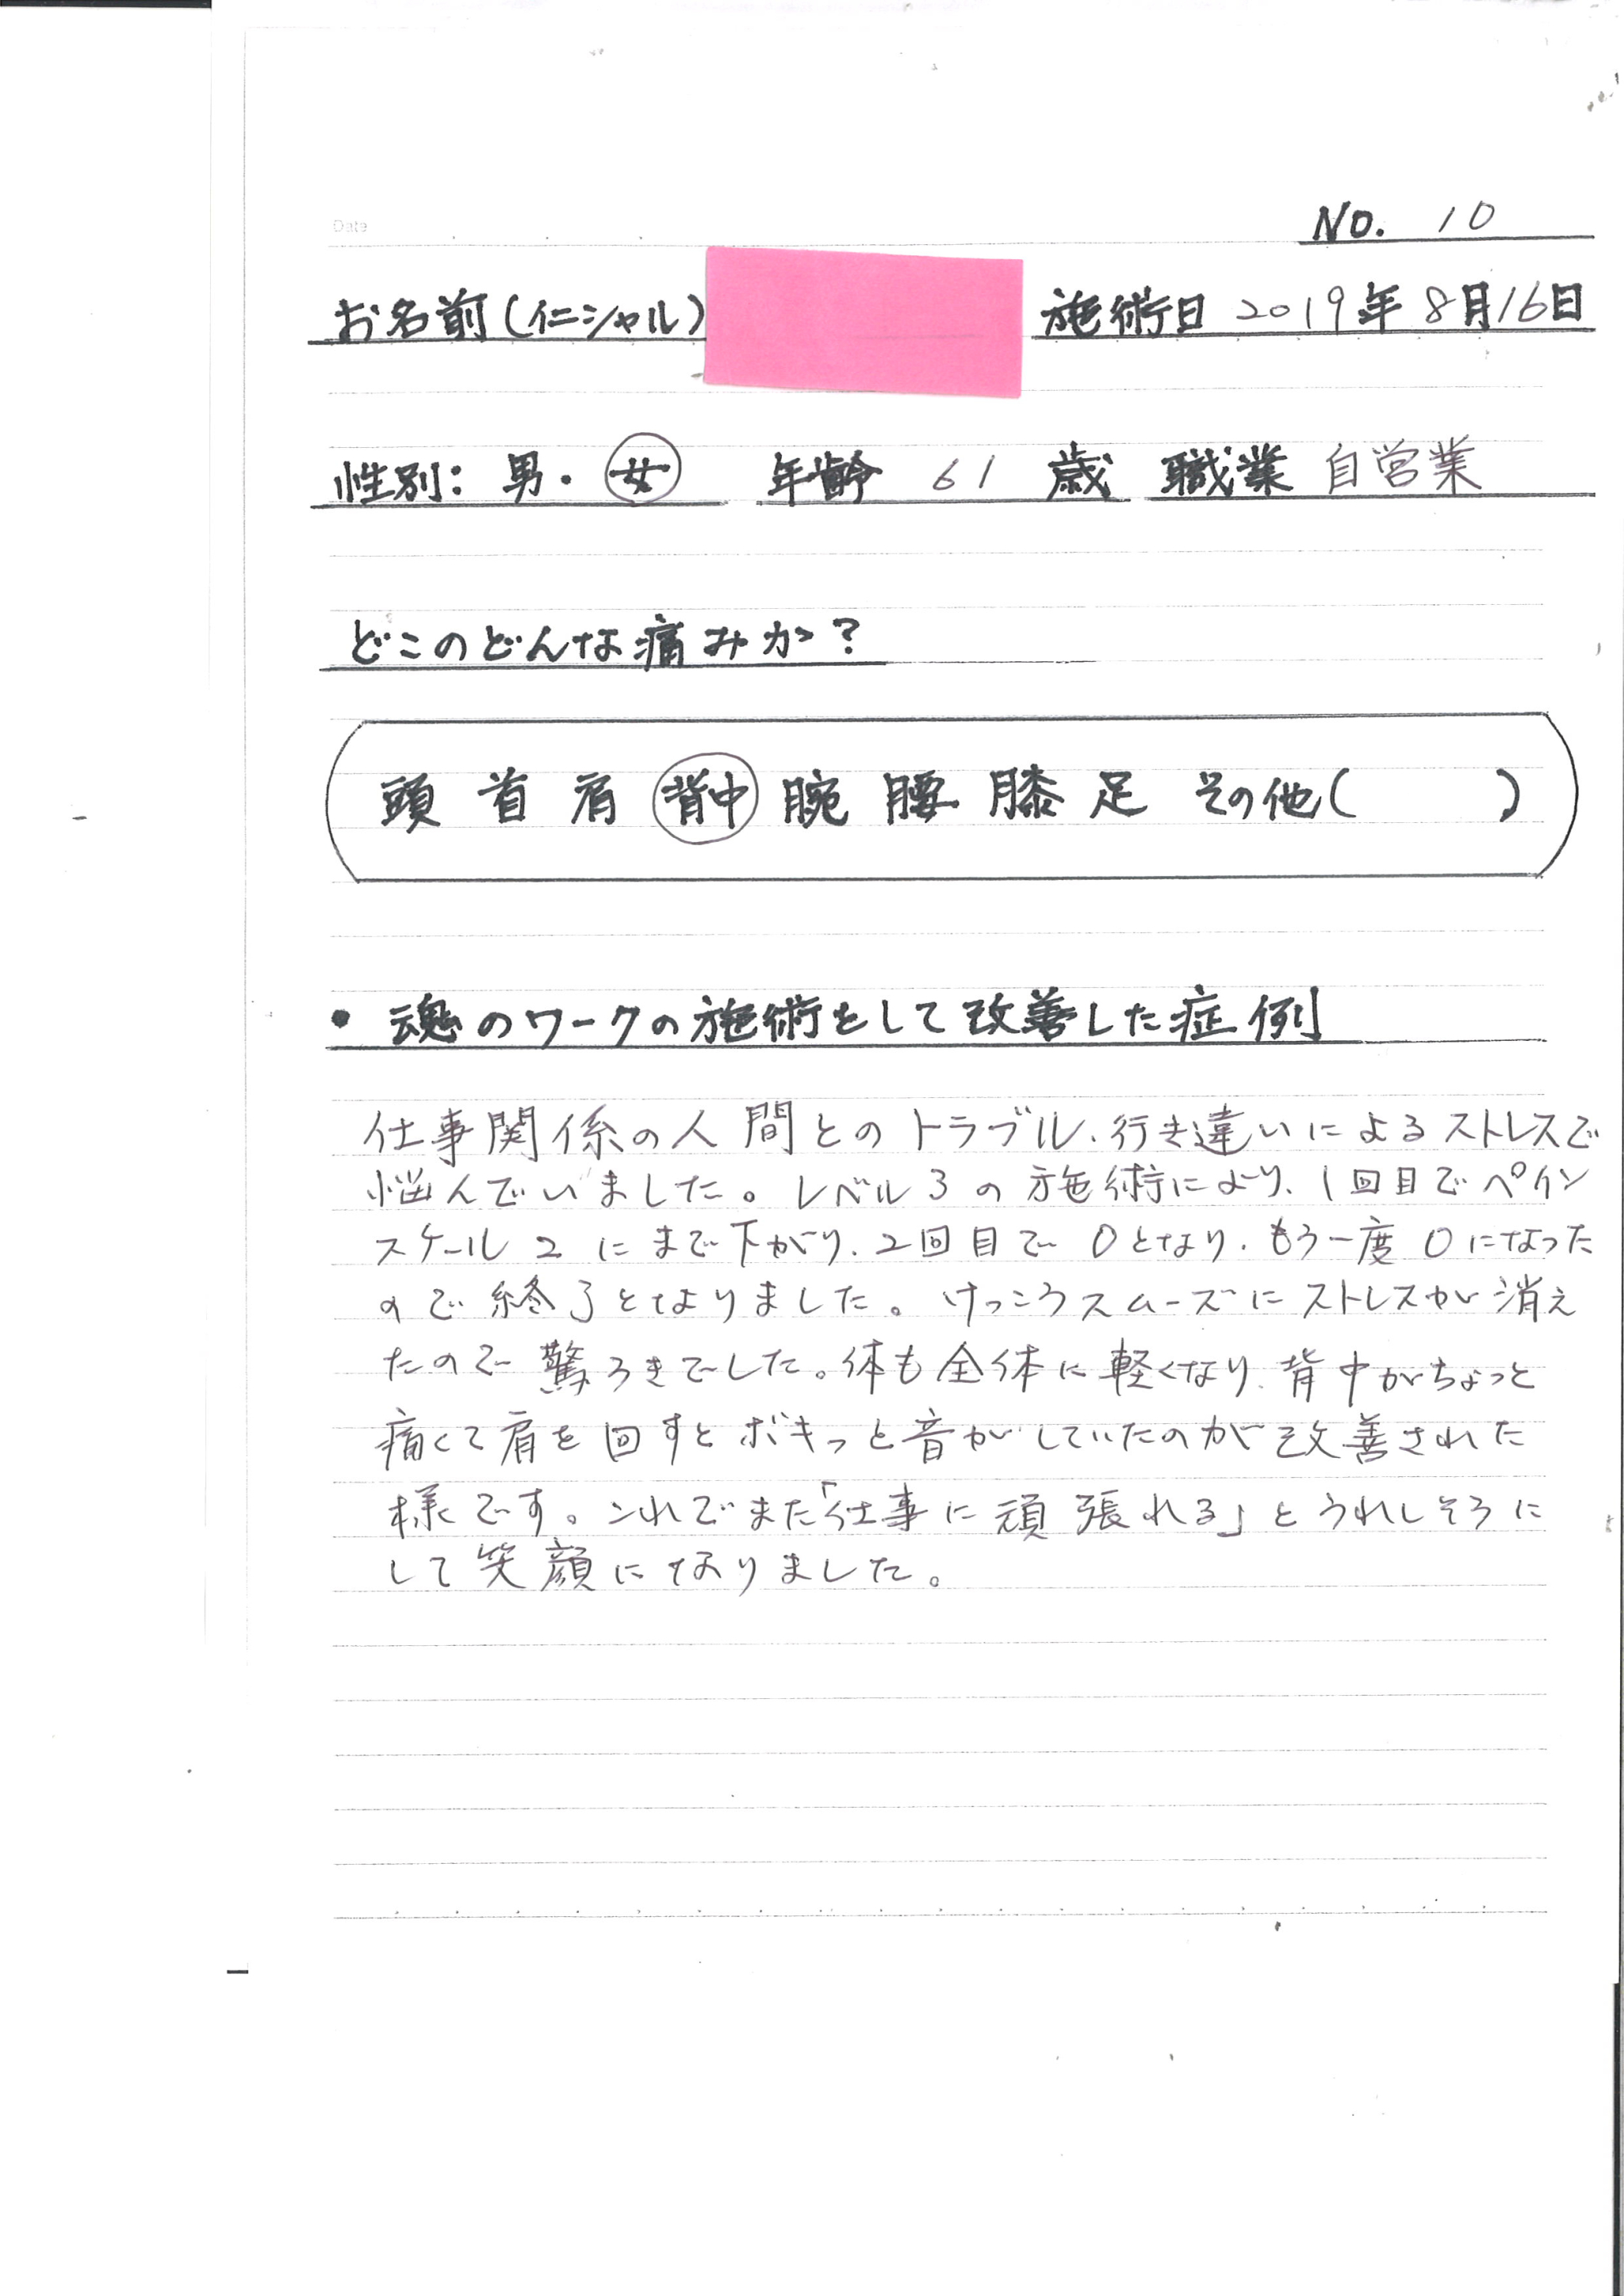 Date
NO. 10
お名前(イニシャル) 施術日 2019年 8月16日
性別: 男・女 年齢 61 歳 職業 自営業
どこのどんな痛みか?
頭 首 肩 背中 腕 腰 膝 足 その他( )
• 魂のワークの施術をして改善した症例
仕事関係の人間とのトラブル、行き違いによるストレスで
悩んでいました。レベル3の施術により、1回目でペイン
スケール2にまで下がり、2回目で0となり、もう一度0になった
ので終了となりました。けっこうスムーズにストレスが消え
たので驚ろきでした。体も全体に軽くなり、背中がちょっと
痛くて肩を回すとボキっと音がしていたのが改善された
様です。これでまた「仕事に頑張れる」とうれしそうに
して笑顔になりました。